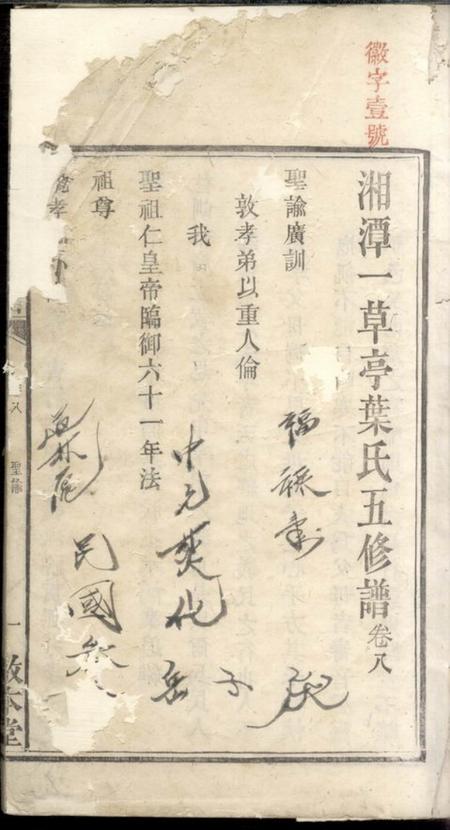 徽字壹號
湘潭一草亭葉氏五修譜 卷八
聖諭廣訓
敦孝弟以重人倫
我
聖祖仁皇帝臨御六十一年法
祖尊
孝
福祿壽
中元
化
岳
子
民國
聖諭
一
敦本堂